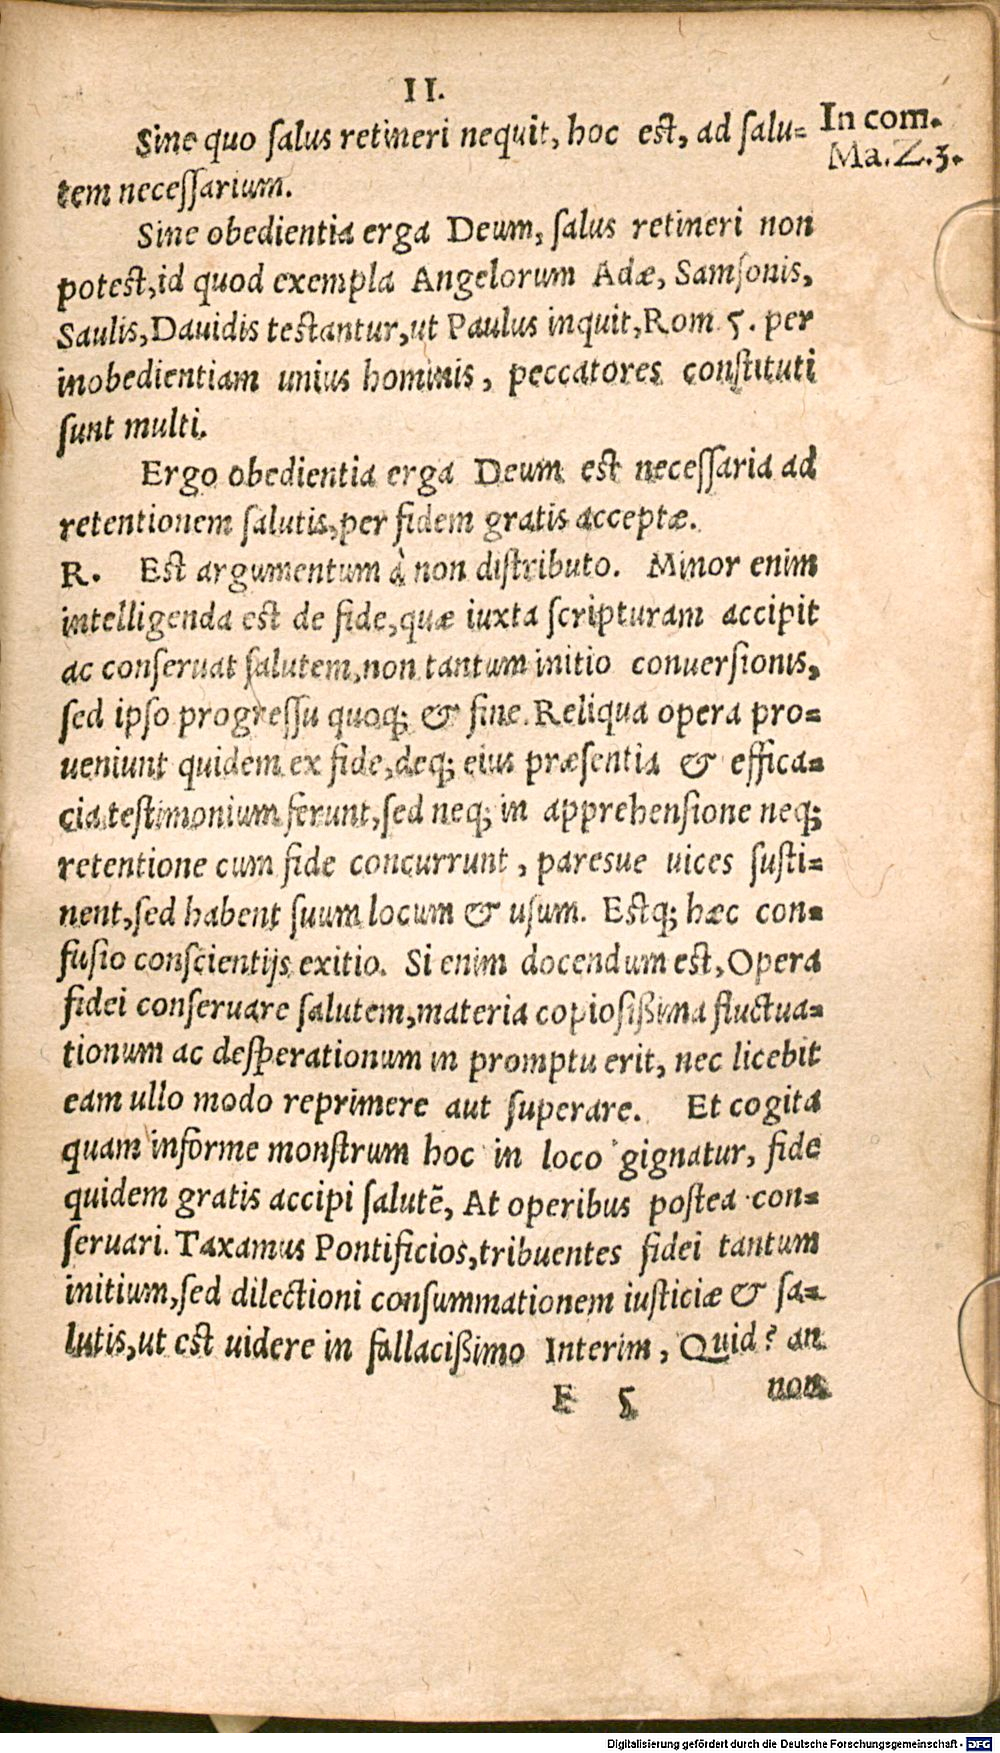 II.
Sine quo salus retineri nequit, hoc est, ad salu=
tem necessarium.
In com.
Ma. Z. 3.
Sine obedientia erga Deum, salus retineri non
potest, id quod exempla Angelorum Adæ, Samsonis,
Saulis, Dauidis testantur, ut Paulus inquit, Rom 5. per
inobedientiam unius hominis, peccatores constituti
sunt multi.
Ergo obedientia erga Deum est necessaria ad
retentionem salutis, per fidem gratis acceptæ.
R. Est argumentum à non distributo. Minor enim
intelligenda est de fide, quæ iuxta scripturam accipit
ac conseruat salutem, non tantum initio conuersionis,
sed ipso progressu quoq; & fine. Reliqua opera pro=
ueniunt quidem ex fide, deq; eius præsentia & effica=
cia testimonium ferunt, sed neq; in apprehensione neq;
retentione cum fide concurrunt, paresue uices susti=
nent, sed habent suum locum & usum. Estq; hæc con=
fusio conscientijs exitio. Si enim docendum est, Opera
fidei conseruare salutem, materia copiosißima fluctua=
tionum ac desperationum in promptu erit, nec licebit
eam ullo modo reprimere aut superare. Et cogita
quam informe monstrum hoc in loco gignatur, fide
quidem gratis accipi salutē, At operibus postea con=
seruari. Taxamus Pontificios, tribuentes fidei tantum
initium, sed dilectioni consummationem iusticiæ & sa=
lutis, ut est uidere in fallacißimo Interim, Quid? an
E 5 non
Digitalisierung gefördert durch die Deutsche Forschungsgemeinschaft - DFG